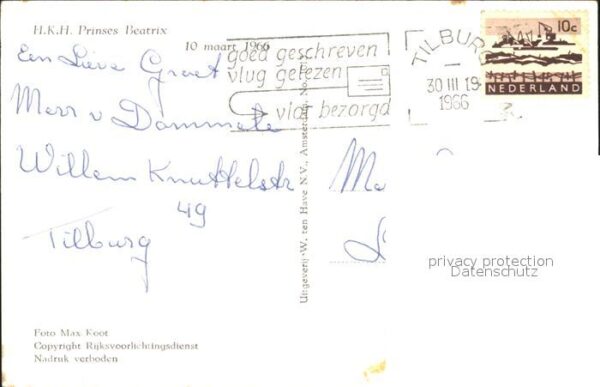 H.K.H. Prinses Beatrix
10 maart 1966
Een Lieve Groet
Merr v Dommele
Willem Knuttelstr
49
Tilburg
Foto Max Koot
Copyright Rijksvoorlichtingsdienst
Nadruk verboden
Uitgeverij W. ten Have N.V., Amsterdam, No.
goed geschreven
vlug gelezen
vlot bezorgd
TILBURG
30 III 19
1966
10c
NEDERLAND
privacy protection
Datenschutz